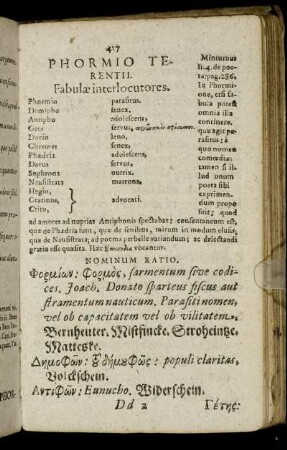 417
PHORMIO TE-
RENTII.
Fabulæ interlocutores.
Phormio parasitus.
Demipho senex.
Antipho adolescens.
Geta servus,
Dorio leno.
Chremes senex.
Phædria adolescens.
Davus servus.
Sophrona nutrix.
Nausistrata matrona.
Hegio,
Cratinus,
Crito,
advocati.
Minturnus
li. 4. de poe-
ta: pag. 286.
In Phormi-
one, etsi
fabula potest
omnia illa
continere,
quæ agit pa-
rasitus; à
quo nomen
comœdiæ:
tamen si il-
lud unum
poeta sibi
exprimen-
dum propo-
suit; quod
ad amores ad nuptias Antiphonis spectabat: consentaneum est,
quæ de Phædria sunt, quæ de senibus, tairum in modum elusis,
quæ de Nausistrata; ad poema perbelle variandum; ac delectandi
gratia esse quæsita. Hæc vocantur.
NOMINUM RATIO.
Φορμίων: Φορμὸς, sarmentum sive codi-
ces, Joach. Donato sparteus fiscus aut
stramentum nauticum. Parasiti nomen,
vel ob capacitatem vel ob vilitatem.
Bernheuter. Mistfincke. Stroheintze.
Matteske.
Δημοφῶν: δήμου φῶς: populi claritas,
Volckschein.
Αντιφῶν: Eunucho. Widerschein.
Dd 2 Γέτης: